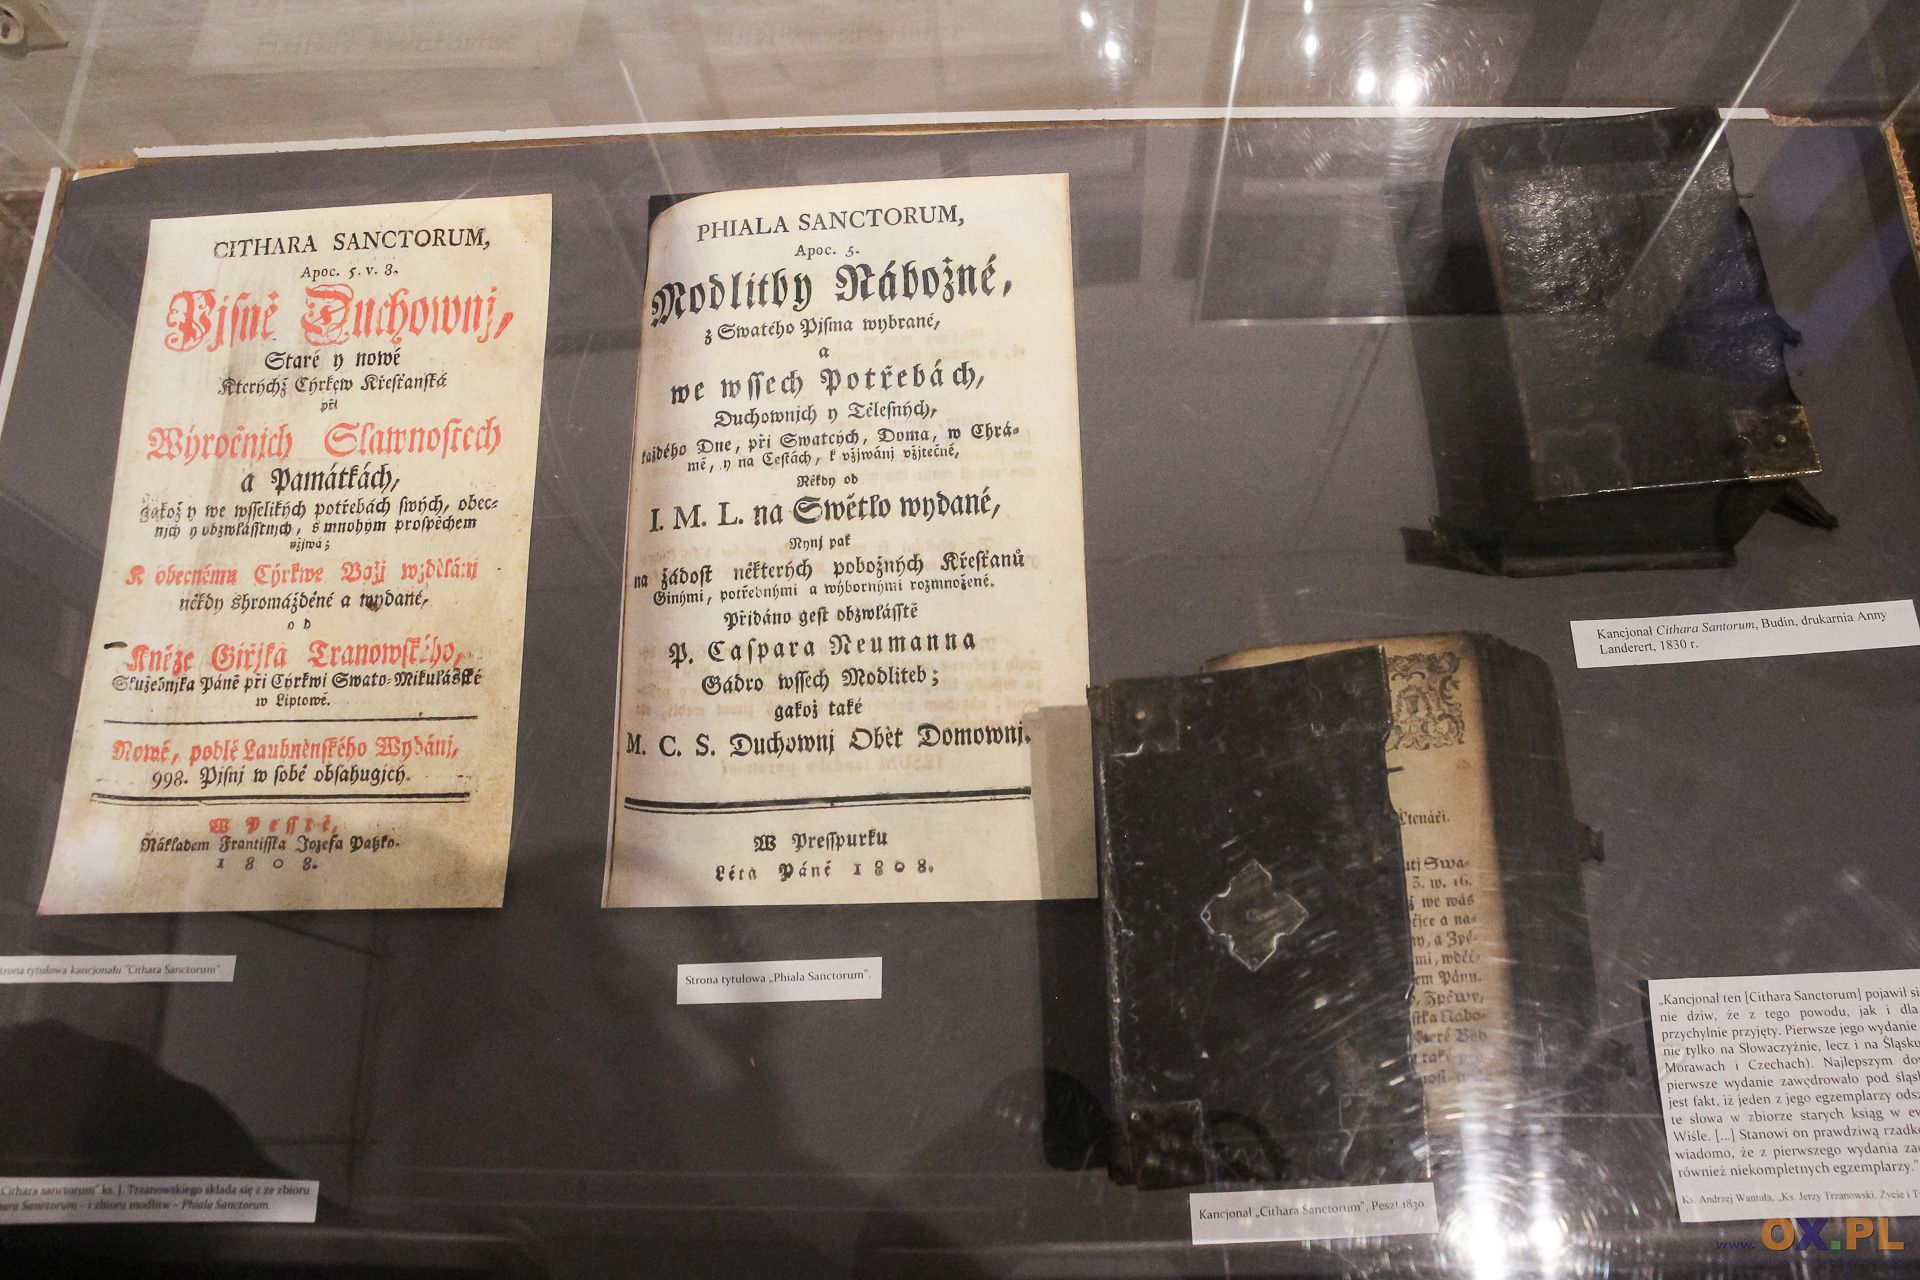 CITHARA SANCTORUM,
Apoc. 5. v. 8.
Pjsně Duchownj,
Staré y nowé
Kterýchž Cýrkew Křesťanská
při
Weyročnjch Slawnostech
a Památkách,
gakož y we wsselikých potřebách swých, obec-
njch y obzwlásstnjch, s mnohým prospěchem
vžjwá;
K obecnému Cýrkwe Boži wzdělánj
někdy shromážděné a wydané,
od
Kněze Giřjka Tranowského,
Služebnjka Páně při Cýrkwi Swato-Mikulásské
w Liptowě.
Nowé, podlé Laubněnského Wydánj,
998. Pjsnj w sobě obsahugjcý.
W Pesstě,
Nákladem Frantisska Jozefa Patzko.
1808.
Strona tytułowa kancjonału "Cithara Sanctorum".
Cithara sanctorum" ks. J. Trzanowskiego składa się z ze zbioru
Sanctorum - i zbioru modlitw - Phiala Sanctorum.
PHIALA SANCTORUM,
Apoc. 5.
Modlitby Nábožné,
z Swatého Pjsma wybrané,
a
we wssech Potřebách,
Duchownjch y Tělesných,
každého Dne, při Swatých, Doma, w Chrá-
mě, y na Cestách, k vžjwánj vžitečné,
Někdy od
I. M. L. na Swětlo wydané,
Nynj pak
na žádost některých pobožných Křesťanů
Ginými, potřebnými a wýbornými rozmnožené.
Přidáno gest obzwlásstě
P. Caspara Neumanna
Gádro wssech Modliteb;
gakož také
M. C. S. Duchownj Obět Domownj.
W Presspurku
Léta Páně 1808.
Strona tytułowa „Phiala Sanctorum”.
Kancjonał Cithara Santorum, Budin, drukarnia Anny
Landerert, 1830 r.
Čtenáři.
Swa-
5. w. 16.
we wás
a na-
a Zpě-
wděč-
Pánu.
Zpěwy,
Kancjonał „Cithara Sanctorum”, Peszt 1830.
„Kancjonał ten [Cithara Sanctorum] pojawił si
nie dziw, że z tego powodu, jak i dla
przychylnie przyjęty. Pierwsze jego wydanie
nie tylko na Słowaczyźnie, lecz i na Śląsku
Morawach i Czechach). Najlepszym do
pierwsze wydanie zawędrowało pod śląs
jest fakt, iż jeden z jego egzemplarzy odsz
te słowa w zbiorze starych ksiąg w ew
Wiśle. [...] Stanowi on prawdziwą rzadk
wiadomo, że z pierwszego wydania za
również niekompletnych egzemplarzy."
Ks. Andrzej Wantuła, „Ks. Jerzy Trzanowski. Życie i T
www.OX.PL